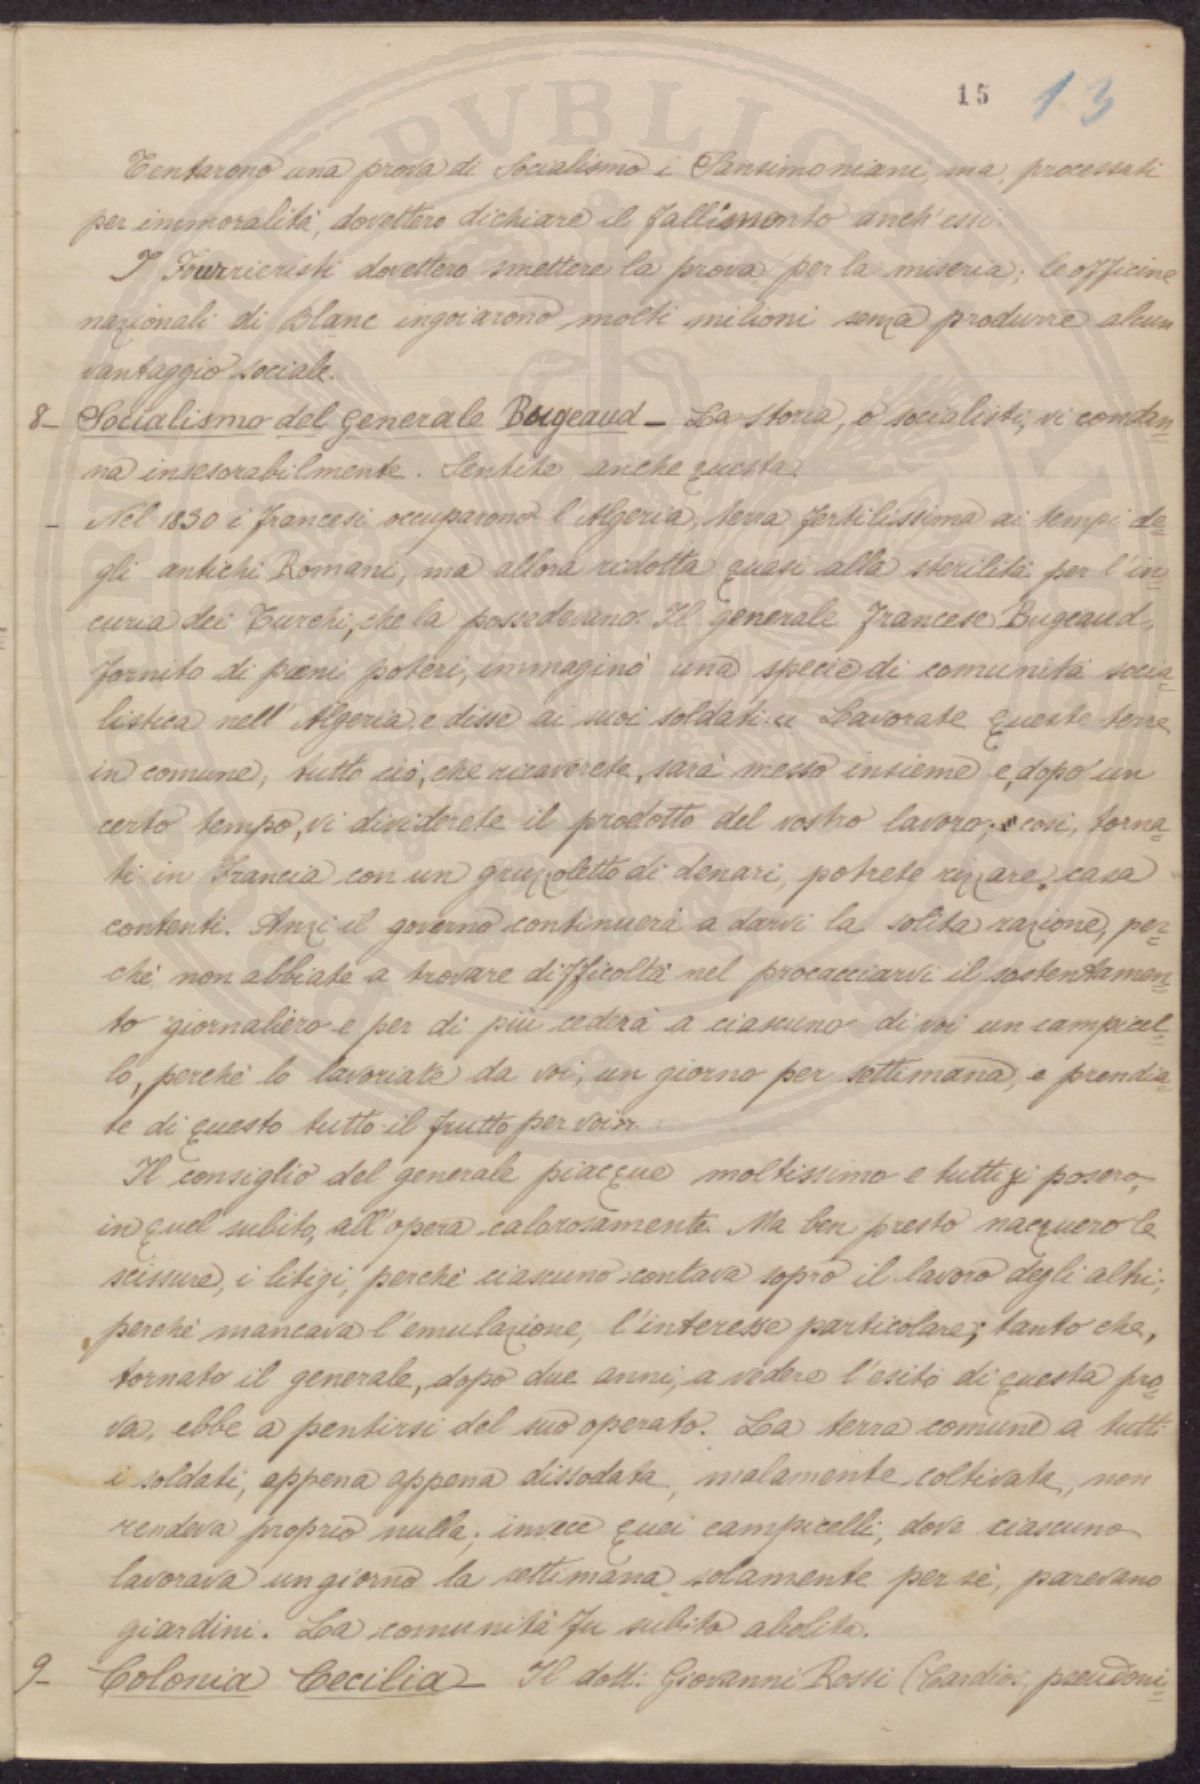 15 13
Tentarono una prova di Socialismo i Sansimoniani, ma, processati
per immoralità, dovettero dichiare il fallimento anch'essi.
I Fourrieristi dovettero smettere la prova per la miseria; le officine
nazionali di Blanc ingoiarono molti milioni senza produrre alcun
vantaggio sociale.
8- Socialismo del generale Bugeaud - La storia, o socialisti, vi condan=
na insesorabilmente. Sentite anche questa.
- Nel 1830 i francesi occuparono l'Algeria, terra fertilissima ai tempi de=
gli antichi Romani, ma allora ridotta quasi alla sterilità per l'in=
curia dei Turchi, che la possedevano. Il generale francese Bugeaud,
fornito di pieni poteri, immaginò una specie di comunità socia=
listica nell'Algeria, e disse ai suoi soldati: « Lavorate queste terre
in comune; tutto ciò, che ricaverete, sarà messo insieme e, dopo un
certo tempo, vi dividerete il prodotto del vostro lavoro; così, torna=
ti in Francia con un gruzzoletto di denari, potrete rizzare casa
contenti. Anzi il governo continuerà a darvi la solita razione, per=
chè non abbiate a trovare difficoltà nel procacciarvi il sostentamen=
to giornaliero e per di più cederà a ciascuno di voi un campicel=
lo, perchè lo lavoriate da voi, un giorno per settimana, e prendia=
te di questo tutto il frutto per voi».
Il consiglio del generale piacque moltissimo e tutti si posero,
in quel subito, all'opera calorosamente. Ma ben presto nacquero le
scissure, i litigi, perchè ciascuno contava sopra il lavoro degli altri;
perchè mancava l'emulazione, l'interesse particolare; tanto che,
tornato il generale, dopo due anni, a vedere l'esito di questa pro=
va, ebbe a pentirsi del suo operato. La terra comune a tutti
i soldati, appena appena dissodata, malamente coltivata, non
rendeva proprio nulla; invece quei campicelli, dove ciascuno
lavorava un giorno la settimana solamente per sè, parevano
giardini. La comunità fu subito abolita.
9- Colonia Cecilia - Il dott: Giovanni Rossi (Cardias, pseudoni=